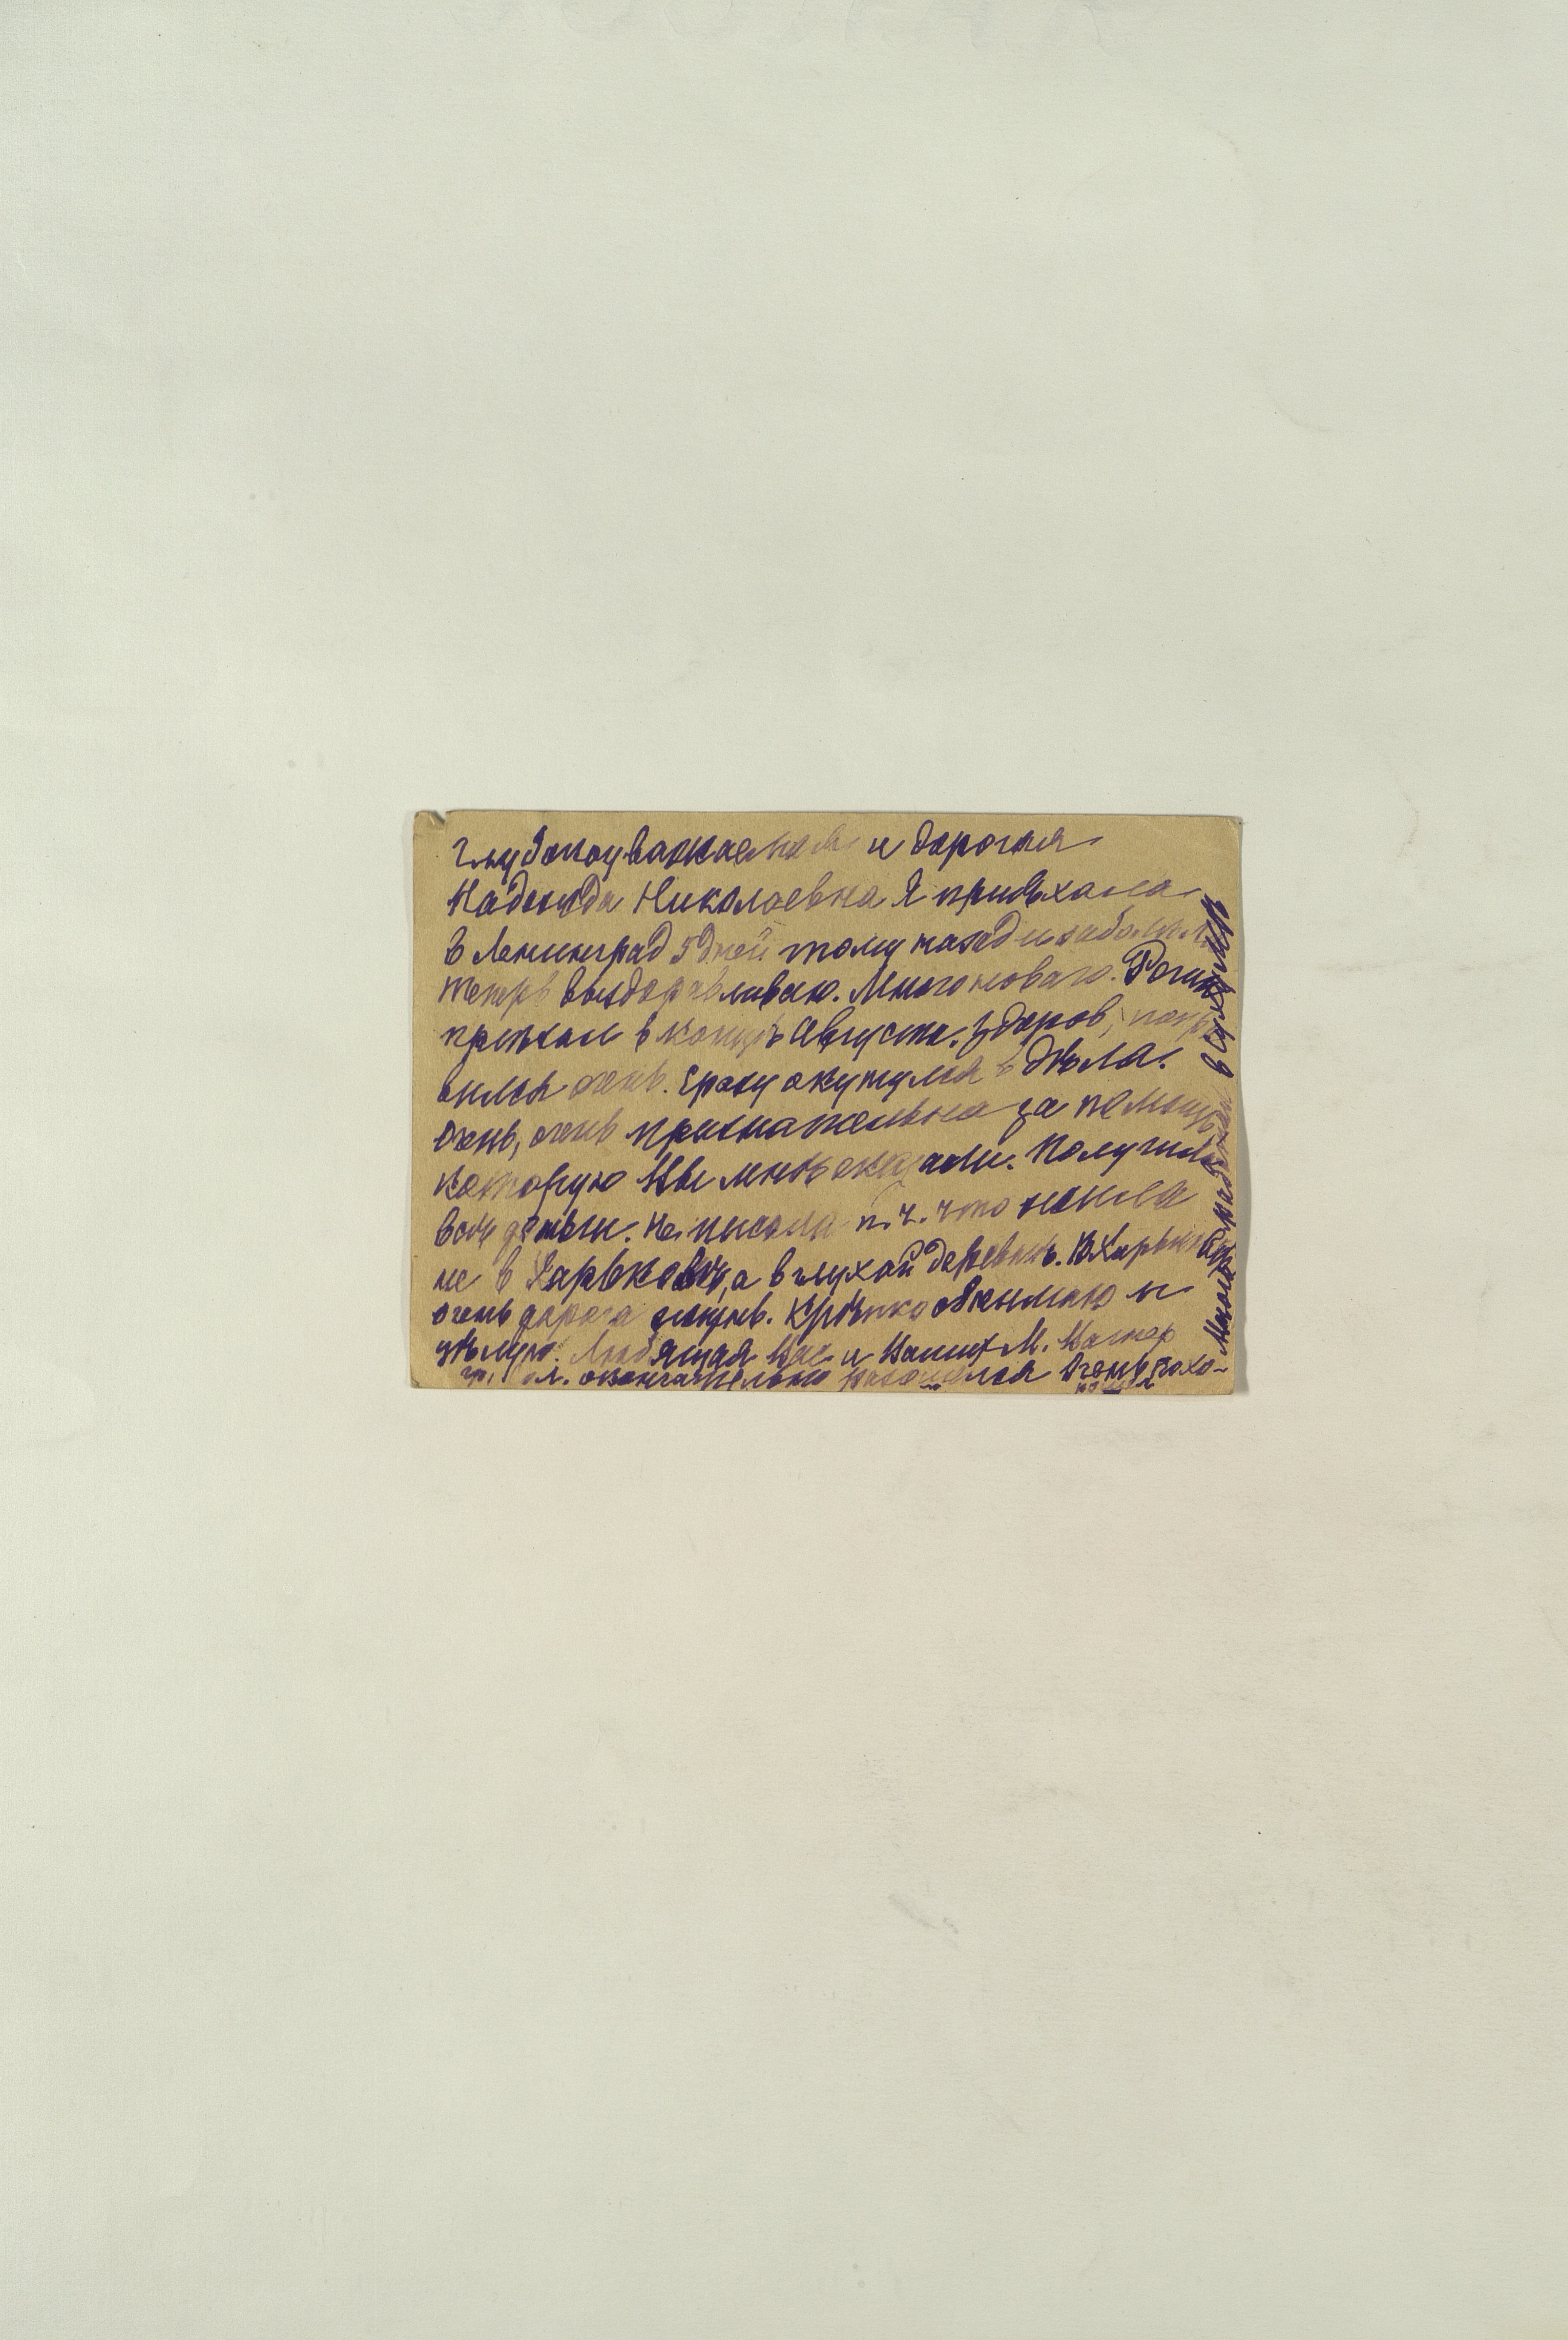 Глубокоуважаемая и дорогая
Надежда Николаевна Я приѣхала
в Ленинград 5 дней тому назад и заболѣл
теперь выздоравливаю. Много новаго.
приѣхал в концѣ Августа. Здоров, попр
вился очень. Сразу окунулся в дѣла.
Очень, очень признательна за помощь,
которую Вы мнѣ оказали. Получила
всѣ деньги. Не писала п. ч. что жила
не в Харьковѣ, а в глухой деревнѣ. В Харьк
очень дорога жизнь. Крѣпко обнимаю и
цѣлую. Любящая Вас и Ваших М. Вагнер
окончательно разошелся Очень
Много работал в